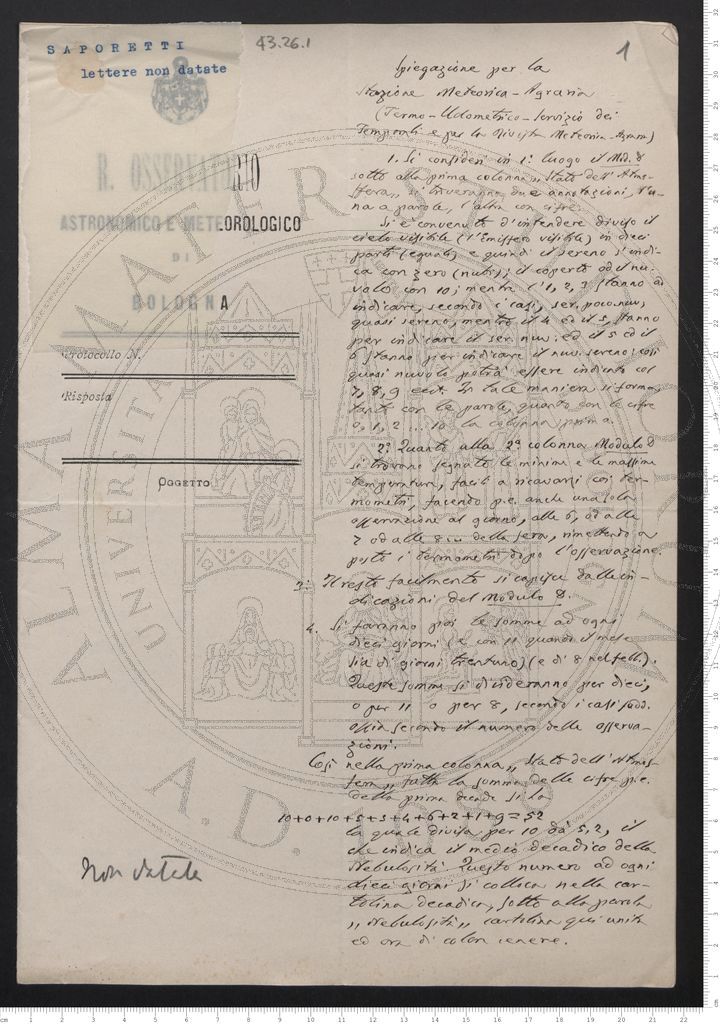 SAPORETTI
lettere non datate
43.26.1
1
R. OSSERVATORIO
ASTRONOMICO E METEOROLOGICO
DI
BOLOGNA
Protocollo N.
Risposta
OGGETTO
Non datate
Spiegazione per la
Stazione Meteorica-Agraria
(Termo-Udometrico-Servizio dei
Temporali e per la Rivista Meteorica-Agraria)
1. Si consideri in 1º luogo il Mod. D
sotto alla prima colonna "Stato dell'Atmo-
sfera", si troveranno due annotazioni, l'u-
na a parole, l'altra con cifre.
Si è convenuto d'intendere diviso il
cielo visibile (l'Emisfero visibile) in dieci
parti (eguali) e quindi il sereno s'indi-
ca con zero (nubi); il coperto od il nu-
volo con 10; mentre l'1, 2, 3 stanno ad
indicare, secondo i casi, ser. poco nuv,
quasi sereno, mentre il 4 ed il 5, stanno
per indicare il ser. nuv: ed il 5 ed il
6 stanno per indicare il nuv. sereno; così
quasi nuvolo potrà essere indicato col
7, 8, 9 ecct. In tale maniera si forma
tanto con le parole, quanto con le cifre
0, 1, 2 ... 10 la colonna prima.
2º Quanto alla 2ª colonna Modulo D
si trovano segnate le minima e le massima
temperatura, facili a ricavarsi coi ter-
mometri, facendo p.e. anche una sola
osservazione al giorno, alle 6, od alle
7 od alle 8 della sera, rimettendo a
posto i termometri dopo l'osservazione.
3º Il resto facilmente si capisce dalle in-
dicazioni del Modulo D.
4. Si faranno poi le somme ad ogni
dieci giorni (e con 11 quando il mese
sia di giorni trentuno) (e di 8 nel febb).
Queste somme si divideranno per dieci,
o per 11 o per 8, secondo i casi sudd.
ossia secondo il numero delle osserva-
zioni.
Così nella prima colonna "Stato dell'Atmos-
fera" fatta la somma delle cifre p.e.
della prima decade si ha
10+0+10+5+3+4+6+2+1+9=52
la quale divisa per 10 dà 5,2, il
che indica il medio decadico della
Nebulosità. Questo numero ad ogni
dieci giorni si colloca nella car-
tolina decadica, sotto alla parola
"Nebulosità" cartolina qui unita
ed ora di color cenere.